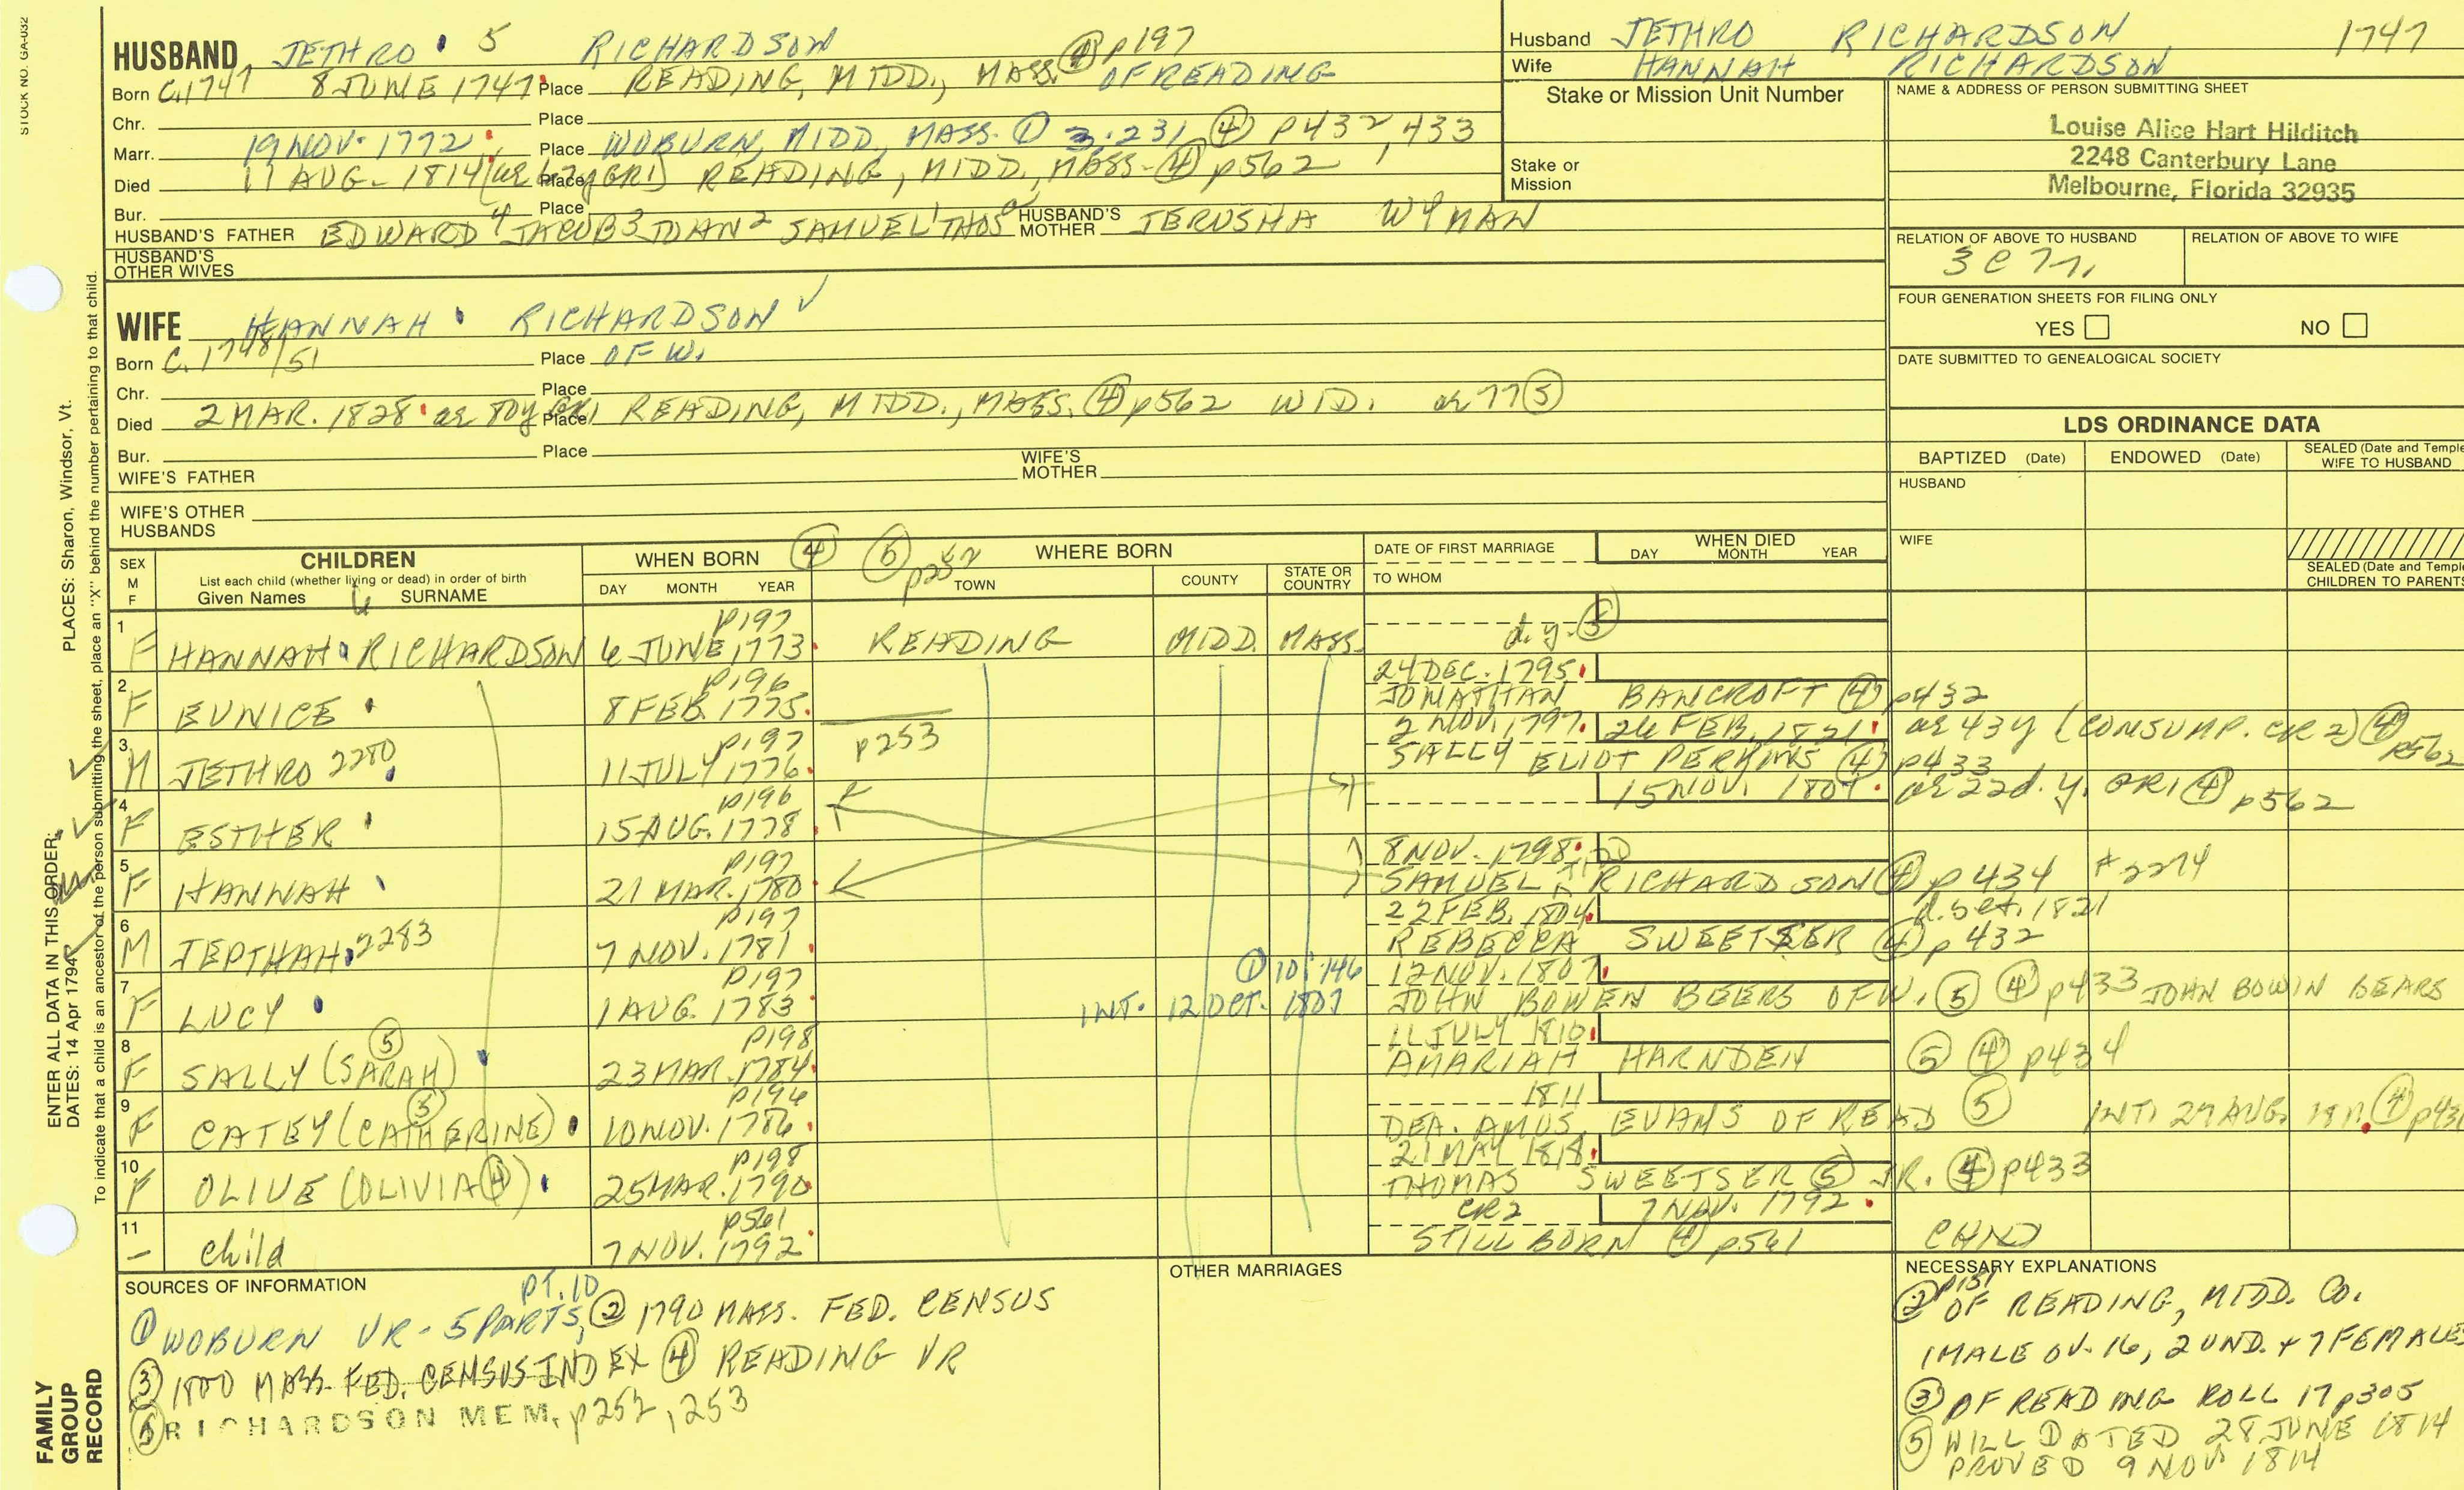 STOCK NO. GA-032
HUSBAND JETHRO 5 RICHARDSON ④ p197
Born C.1747 8 JUNE 1747 Place READING, MIDD., MASS. OF READING
Chr. Place
Marr. 19 NOV. 1772 Place WOBURN, MIDD, MASS. ① 3:231 ④ p432, 433
Died 11 AUG. 1814 (ae 67y GR1) Place READING, MIDD., MASS. ④ p562
Bur. Place
HUSBAND'S FATHER EDWARD 4 JACOB 3 JOHN 2 SAMUEL 1 THOS HUSBAND'S MOTHER JERUSHA WYMAN
HUSBAND'S OTHER WIVES
Husband JETHRO RICHARDSON 1747
Wife HANNAH RICHARDSON
Stake or Mission Unit Number
Stake or Mission
NAME & ADDRESS OF PERSON SUBMITTING SHEET
Louise Alice Hart Hilditch
2248 Canterbury Lane
Melbourne, Florida 32935
RELATION OF ABOVE TO HUSBAND RELATION OF ABOVE TO WIFE
FOUR GENERATION SHEETS FOR FILING ONLY
YES NO
DATE SUBMITTED TO GENEALOGICAL SOCIETY
WIFE HANNAH RICHARDSON ✓
Born C. 1748/51 Place OF W.
Chr. Place
Died 2 MAR. 1828 ae 80y GR1 Place READING, MIDD., MASS. ④ p562 WID. ae 77 ⑤
Bur. Place
WIFE'S FATHER WIFE'S MOTHER
WIFE'S OTHER HUSBANDS
LDS ORDINANCE DATA
BAPTIZED (Date) ENDOWED (Date) SEALED (Date and Temple) WIFE TO HUSBAND
HUSBAND
WIFE
SEALED (Date and Temple) CHILDREN TO PARENTS
SEX M F CHILDREN WHEN BORN ④ ⑤ p252 WHERE BORN DATE OF FIRST MARRIAGE WHEN DIED
List each child (whether living or dead) in order of birth
Given Names 6 SURNAME DAY MONTH YEAR TOWN COUNTY STATE OR COUNTRY TO WHOM DAY MONTH YEAR
p197
1 F HANNAH RICHARDSON 6 JUNE 1773 READING MIDD. MASS. d.y. ⑤
p196 24 DEC. 1795
2 F EUNICE 8 FEB. 1775 JONATHAN BANCROFT ④ p432
p197 p253 2 NOV. 1797 26 FEB. 1821 ae 43y (CONSUMP. CR 2) ④ p562
3 M JETHRO 2280 11 JULY 1776 SALLY ELIOT PERKINS ④ p433
p196 15 NOV. 1801 ae 22 d.y. GR1 ④ p562
4 F ESTHER 15 AUG. 1778
p197 8 NOV. 1798
5 F HANNAH 21 MAR. 1780 SAMUEL RICHARDSON ④ p434 #2274
p197 22 FEB. 1804 d. set. 1821
6 M JEPTHAH 2283 7 NOV. 1781 REBECCA SWEETSER ④ p432
p197 ① 10:146 12 NOV. 1807
7 F LUCY 1 AUG. 1783 INT. 12 OCT. 1807 JOHN BOWEN BEERS OF W. ⑤ ④ p433 JOHN BOWIN BEARS
p198 11 JULY 1810
8 F SALLY (SARAH) ⑤ 23 MAR. 1784 AMARIAH HARNDEN ⑤ ④ p434
p196 1811
9 F CATEY (CATHERINE) ⑤ 10 NOV. 1786 DEA. AMOS EVANS OF READ ⑤ INT. 27 AUG. 1811 ④ p431
p198 21 MAY 1818
10 F OLIVE (OLIVIA ④) 25 MAR. 1790 THOMAS SWEETSER ⑤ JR. ④ p433
p561 CR2 7 NOV. 1792
11 – child 7 NOV. 1792 STILL BORN ④ p561 CHILD
SOURCES OF INFORMATION
PT. 10
① WOBURN VR - 5 PARTS, ② 1790 MASS. FED. CENSUS
③ 1800 MASS. FED. CENSUS INDEX ④ READING VR
⑤ RICHARDSON MEM. p252, 253
OTHER MARRIAGES
NECESSARY EXPLANATIONS
② p151 OF READING, MIDD. CO.
1 MALE OV. 16, 2 UND. + 7 FEMALES
③ OF READING ROLL 17 p305
⑤ WILL DATED 28 JUNE 1814
PROVED 9 NOV 1814
ENTER ALL DATA IN THIS ORDER:
DATES: 14 Apr 1794
PLACES: Sharon, Windsor, Vt.
To indicate that a child is an ancestor of the person submitting the sheet, place an "X" behind the number pertaining to that child.
FAMILY GROUP RECORD